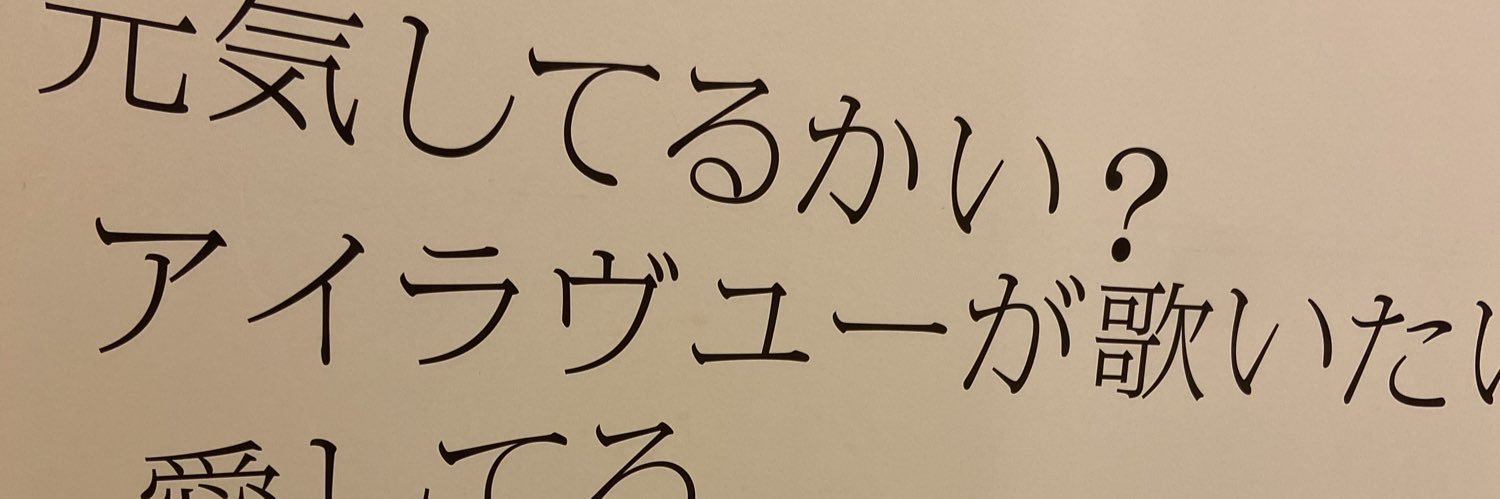 元気してるかい?
アイラヴユーが歌いたい
愛してる